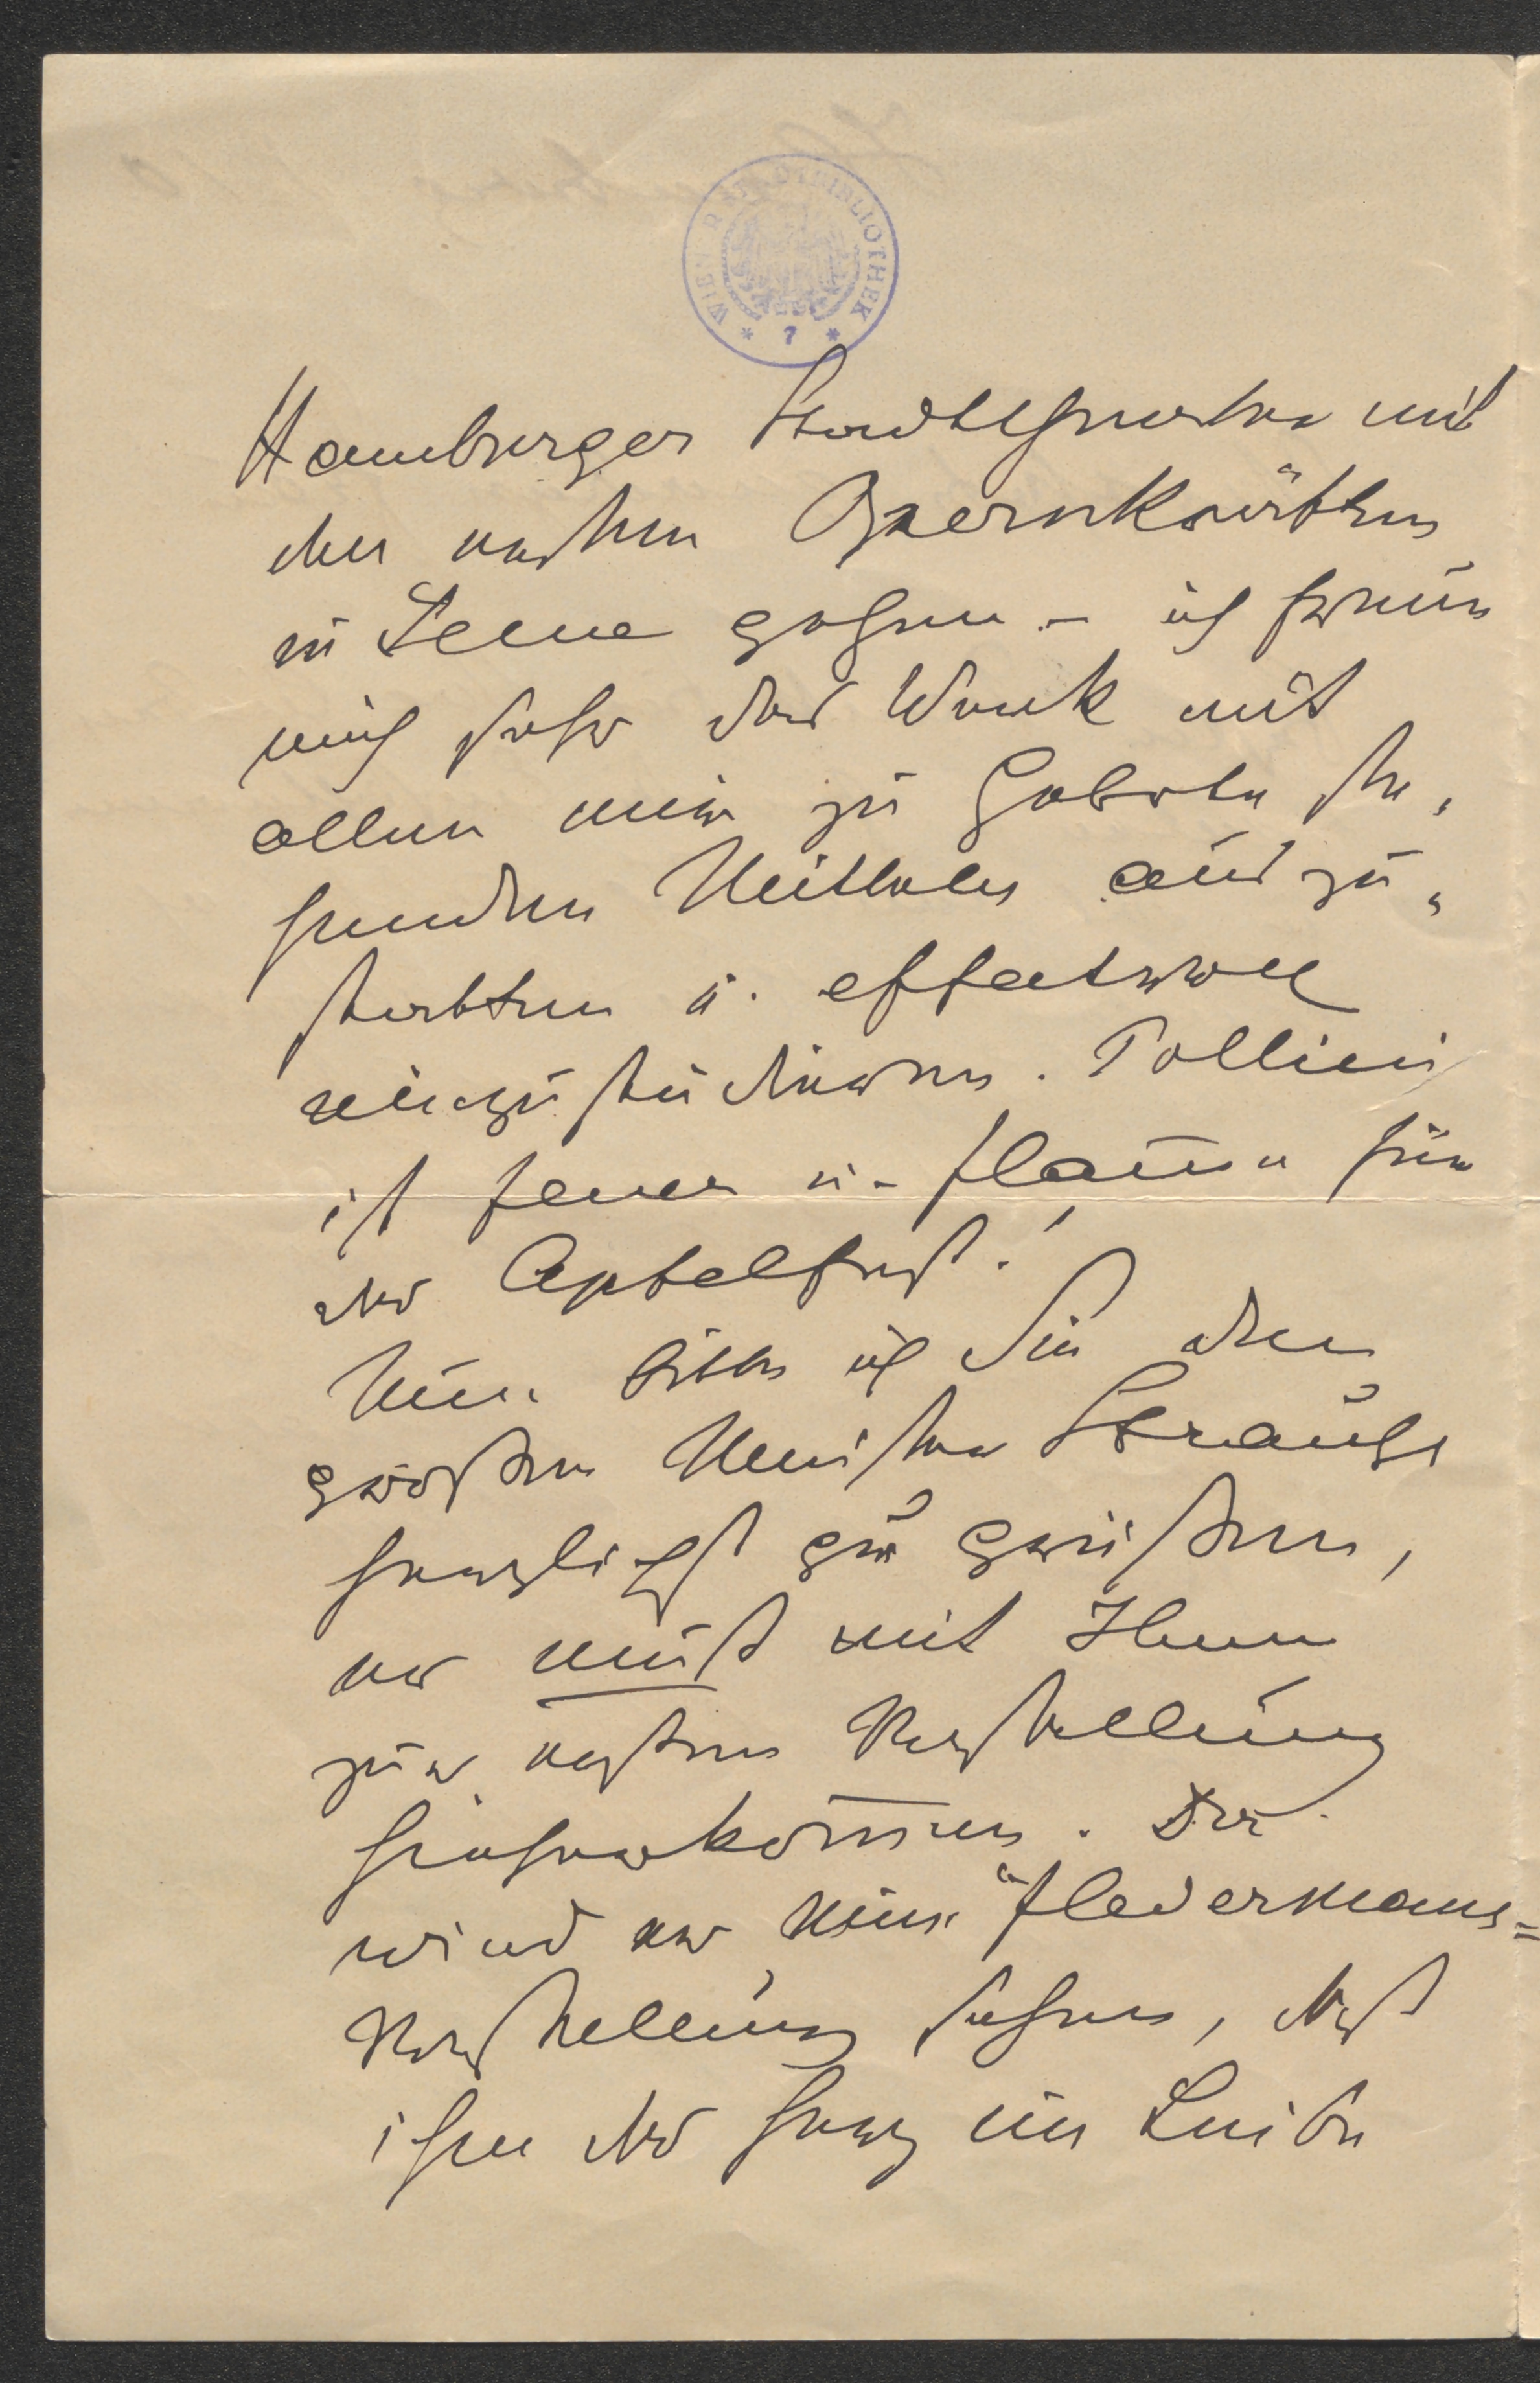 WIENER STADTBIBLIOTHEK
* 7 *
Hamburger Stadttheater mit
den ersten Opernkräften
in Scene gehen. – ich freue
mich sehr das Werk mit
allen mir zu Gebote ste„
henden Mitteln auszu„
statten u. effectvoll
einzustudieren. Pollini
ist Feuer u. Flamme für
das Apfelfest!
Nun bitte ich Sie den
großen Meister Strauß
herzlichst zu grüßen,
er muß mit Ihnen
zur ersten Vorstellung
hieherkommen. Da
wird er eine "Fledermaus=
Vorstellung sehen, daß
ihm das Herz im Leibe